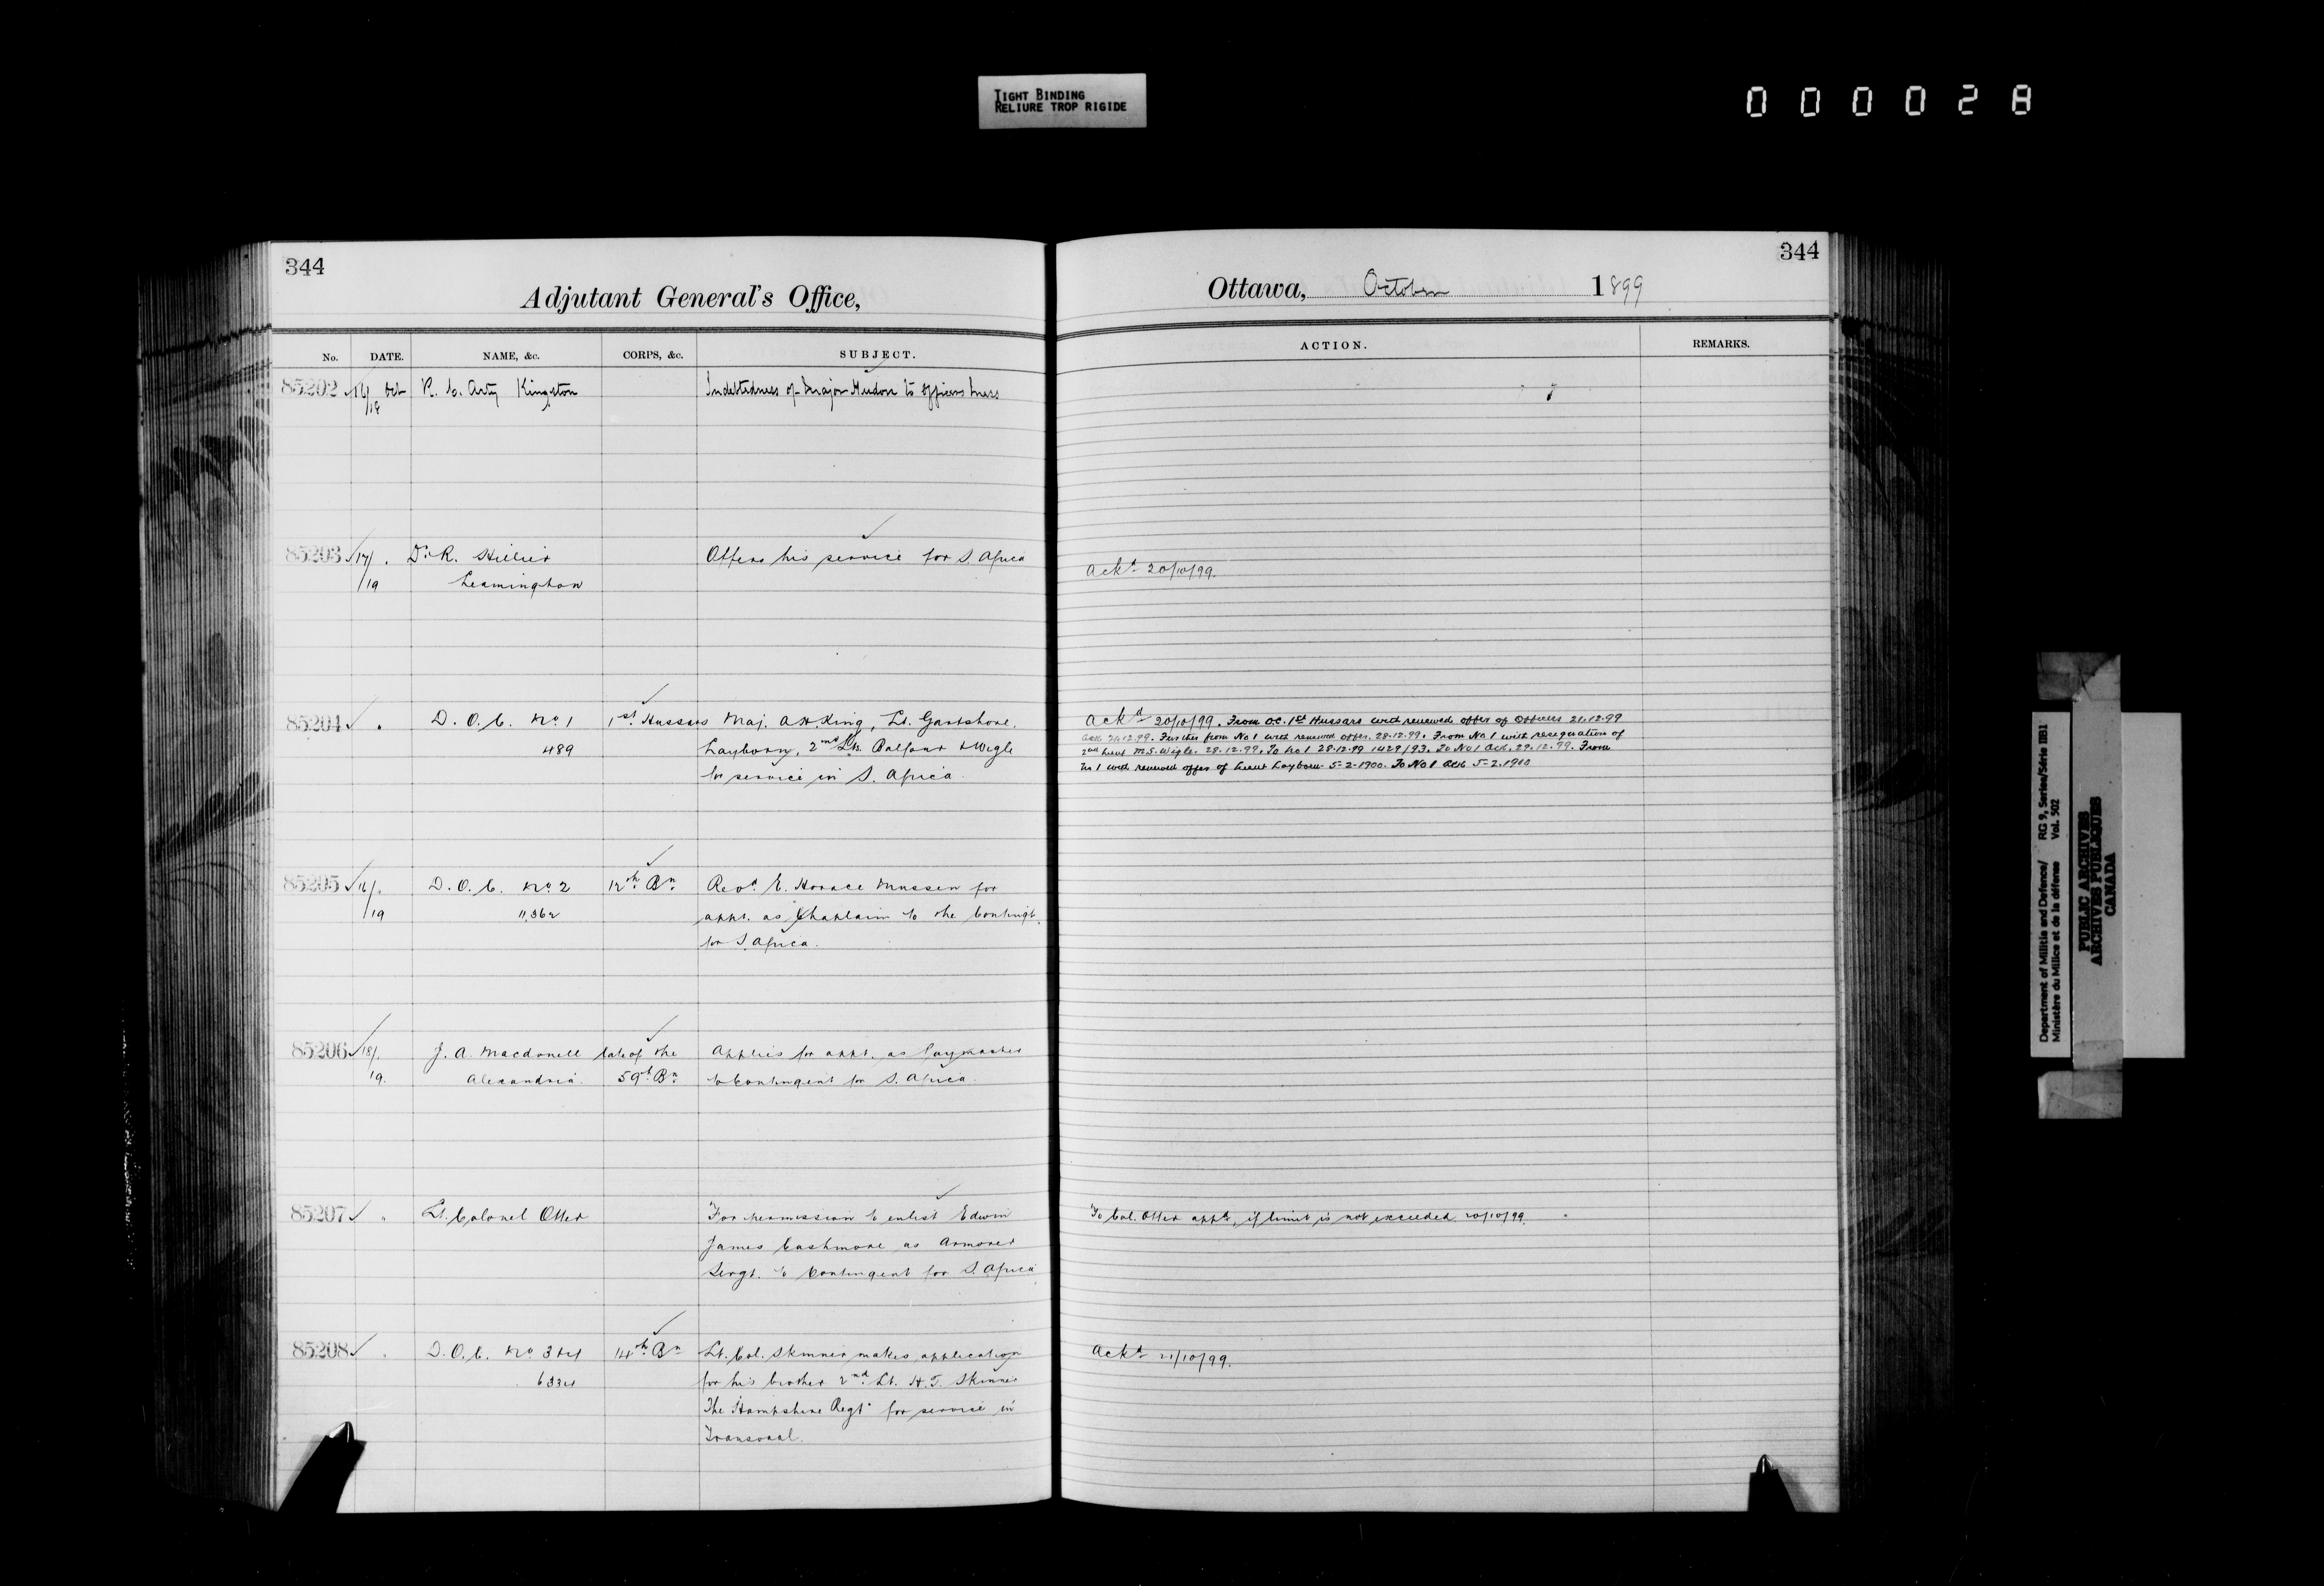 TIGHT BINDING
RELIURE TROP RIGIDE
000028
344
Adjutant General's Office,
No. DATE. NAME, &c. CORPS, &c. SUBJECT.
85202 16/18 Oct R. C. Arty Kingston Indebtedness of Major Hudon to Officers Mess
85203 17/ Dr. R. Hillier Offers his service for S. Africa
/19 Leamington
85204 D. O. C. No. 1 1st Hussars Maj. A H King, Lt. Gartshore,
489 Layborn, 2nd Lts. Balfour & Wigle
for service in S. Africa.
85205 16/ D. O. C. No. 2 12th Bn. Revd. E. Horace Mussen for
/19 11,362 appt. as Chaplain to the Contingt.
for S. Africa.
85206 18/ J. A. Macdonell late of the Applies for appt. as Paymaster
19. Alexandria. 59th Bn. to Contingent for S. Africa.
85207 Lt. Colonel Otter For permission to enlist Edwin
James Cashmore as Armorer
Sergt. to Contingent for S. Africa
85208 D. O. C. No. 3 & 4 14th Bn. Lt. Col. Skinner makes application
6334 for his brother 2nd Lt. H. T. Skinner
The Hampshire Regt. for service in
Transvaal.
344
Ottawa, October 1899
ACTION. REMARKS.
Ackd. 20/10/99.
Ackd. 20/10/99. From O.C. 1st Hussars with renewed offer of Officers 21.12.99
Further from No 1 with renewed offer. 28.12.99. From No 1 with resignation of
2nd Lieut M.S. Wigle. 28.12.99. To No 1 28.12.99 1429/93. To No 1 Ack. 29.12.99. From
No 1 with renewed offer of Lieut Layborn 5-2-1900. To No 1 Ack 5-2.1900
To Col. Otter appd., if limit is not exceeded. 20/10/99.
Ackd. 21/10/99.
Department of Militia and Defence/ RG 9, Series/Série IIB1
Ministère du Milice et de la défense Vol. 502
PUBLIC ARCHIVES
ARCHIVES PUBLIQUES
CANADA